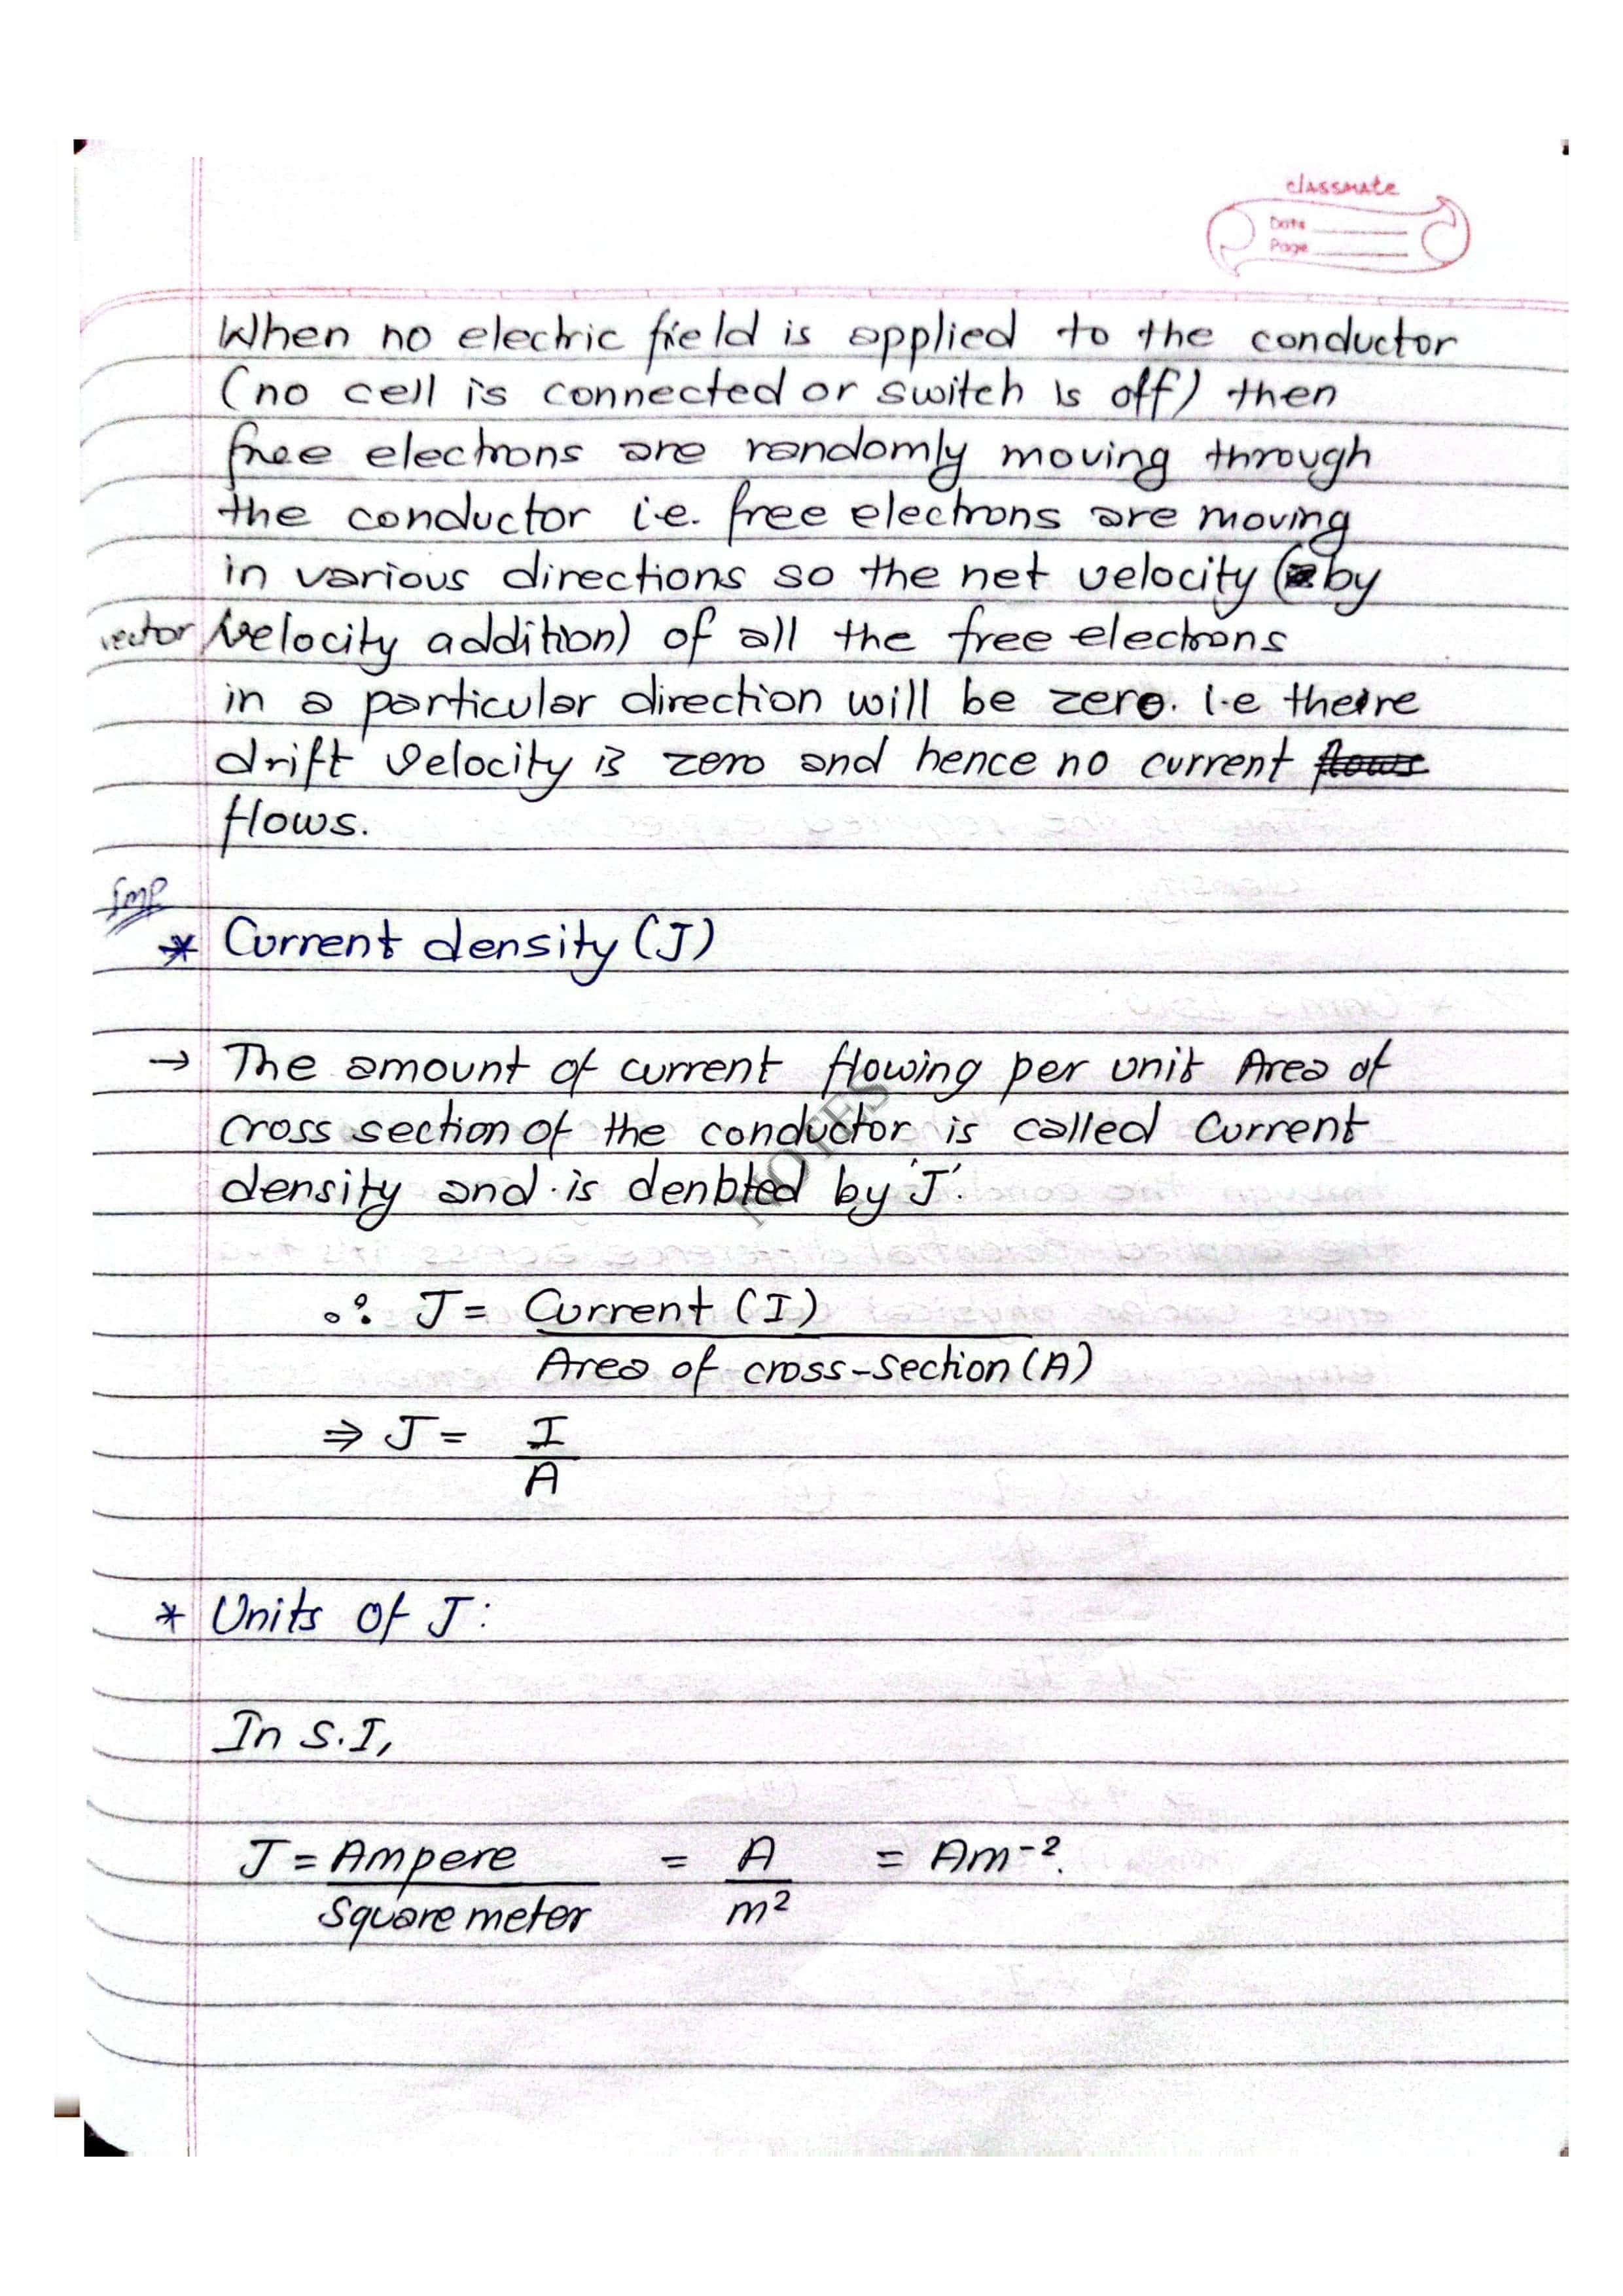 classmate
Date
Page
When no electric field is applied to the conductor
(no cell is connected or switch is off) then
free electrons are randomly moving through
the conductor i.e. free electrons are moving
in various directions so the net velocity (by
vector velocity addition) of all the free electrons
in a particular direction will be zero. I.e theire
drift velocity is zero and hence no current flows
flows.
Imp
* Current density (J)
→ The amount of current flowing per unit Area of
cross section of the conductor is called Current
density and is denoted by 'J'.
NOTES
∴ J = Current (I)
Area of cross-section (A)
⇒ J = I
A
* Units of J:
In S.I,
J = Ampere = A = Am⁻².
Square meter m²